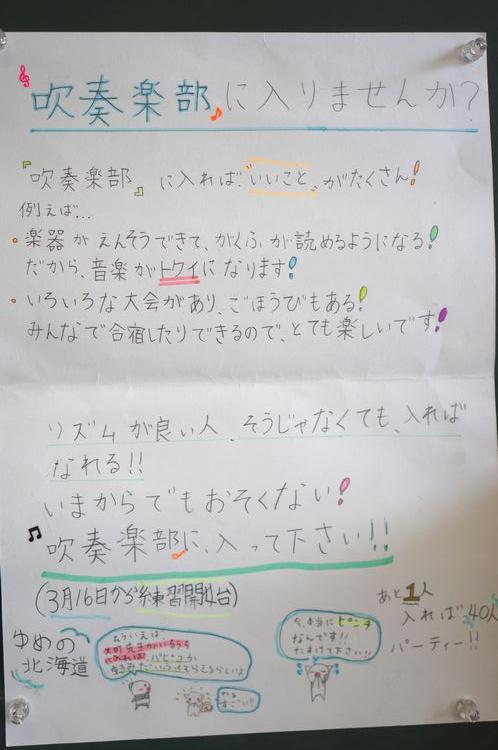 吹奏楽部に入りませんか?
『吹奏楽部』に入れば“いいこと”がたくさん!
例えば…
・楽器がえんそうできて、がくふが読めるようになる!
だから、音楽がトクイになります!
・いろいろな大会があり、ごほうびもある!
みんなで合宿したりできるので、とても楽しいです!
リズムが良い人、そうじゃなくても、入れば
なれる!!
いまからでもおそくない!
吹奏楽部に、入って下さい!!
(3月16日から練習開始)
ゆめの
北海道
そういえば、
今、本当にピンチ
なんです!!
たすけて下さい!!
あと1人
入れば40人
パーティー!!